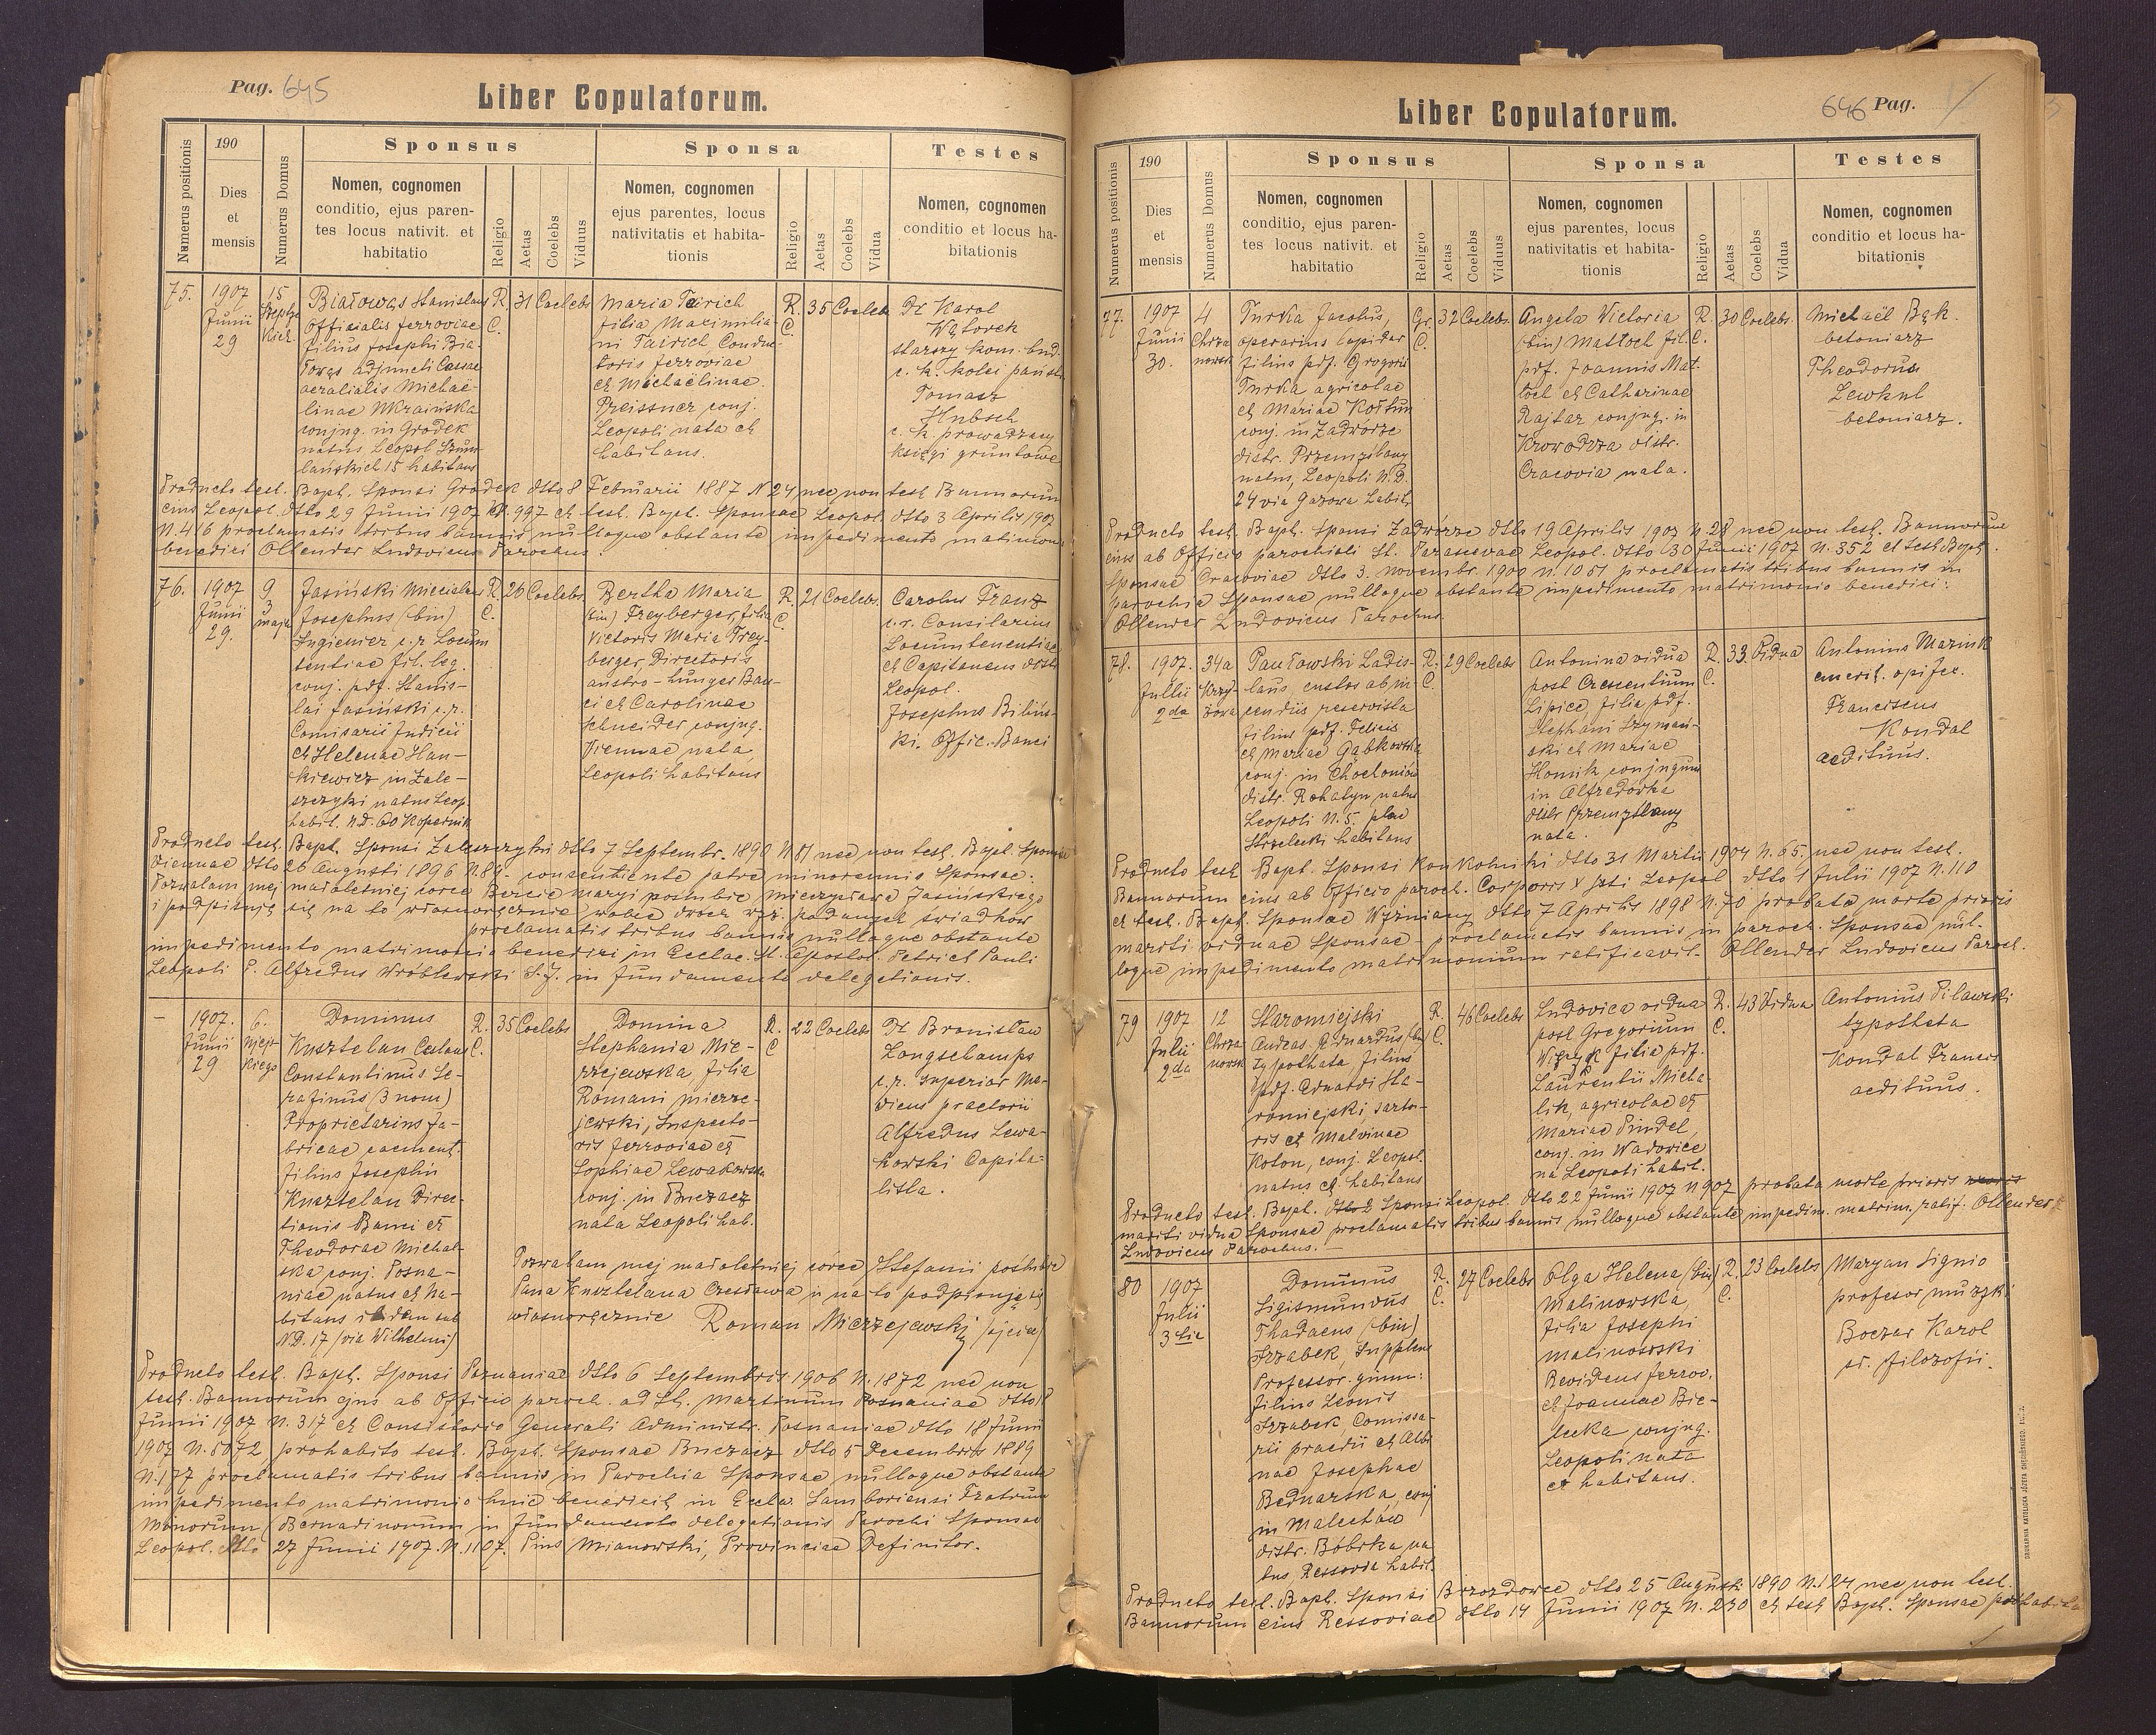 Pag. 645
Liber Copulatorum.
Numerus positionis
190
Dies
et
mensis
Numerus Domus
Sponsus
Nomen, cognomen
conditio, ejus paren-
tes locus nativit. et
habitatio
Religio
Aetas
Coelebs
Viduus
Sponsa
Nomen, cognomen
ejus parentes, locus
nativitatis et habita-
tionis
Religio
Aetas
Coelebs
Vidua
Testes
Nomen, cognomen
conditio et locus ha-
bitationis
75.
1907
Junii
29
15
Białowąs Stanislaus
Officialis ferroviae
filius Josephi Bia-
łowąs adjuncti Cassae
aeralialis Michaë-
linae Ukraińska
conjug. in Gródek
natus Leopol Szum
lańskich 15 habitans
R.
C.
31
Coelebs
Maria Teirich
filia Maximilia-
ni Teirich Conduc-
toris ferroviae
et Michaëlinae
Preissner conj.
Leopoli nata et
habitans.
R.
C.
35
Coelebs
Dr Karol
Wątorek
starszy kom. bud.
c. k. kolei państ.
Tomasz
Hubsch
c. k. prowadzący
księgi gruntowe
Producto test. Bapt. Sponsi Gródek dtto 8 Februarii 1887 N 24 nec non test Bannorum
eius Leopol. dtto 29 Junii 1907 N. 997 et test. Bapt. Sponsae Leopol. dtto 3 Aprilis 1907
N. 416 proclamatis tribus bannis nulloque obstante impedimento matrimon
benedixi Ollender Ludovicus Parochus.
76.
1907
Junii
29.
9
3
maja
Jasiński Miecislaus
Josephus (bin)
Ingienier c. r. Locum
tentiae fil. leg.
conj. pdf. Stanis-
lai Jasiński c. r.
Comisarii Judicii
et Helenae Han-
kiewicz in Zale-
szczyki natus Leop.
habit. N.d. 60 Kopernik
R.
C.
26
Coelebs.
Bertha Maria
(bin) Freyberger, filia
Victoris Maria Frey-
berger, Directoris
austro-hunger Ban-
ci et Carolinae
Schneider conjug.
Viennae nata
Leopoli habitans
R.
C.
21
Coelebs.
Carolus Franz
c. r. Consiliarius
Locumtenentiae
et Capitaneus distr.
Leopol.
Josephus Biliñs-
ki. Offic. Banci
Producto test. Bapt. Sponsi Zaleszczyki dtto 7 Septembr. 1890 N 81 nec non test. Bapt. Sponsae
Viennae dtto 26 Augusti 1896 N. 89. consentiente patre minorennis Sponsae:
Pozwalam mej małoletniej córce Bercie Maryi poślubić Mieczysława Jasińskiego
i podpisuję się na to własnoręcznie wobec dwóch wyż. podanych świadków
proclamatis tribus bannis nulloque obstante
impedimento matrimonia benedixi in Eccl. St. Apostol. Petri et Pauli
Leopoli P. Alfredus Wróblewski S. J. in fundamento delegationis.
–
1907.
Junii
29
6.
Dominus
Kusztelan Ceslaus
Constantinus Se-
rafinus (3 nom)
Proprietarius fa-
bricae cament.
filius Josephi
Kusztelan Direc-
tionis Banci et
Theodorae Michal-
ska conj. Posna-
niae natus et ha-
bitans ibidem sub
ND. 17 (via Wilhelmi)
R.
C.
35
Coelebs
Domina
Stephania Mie-
rzejewska filia
Romani Mierze-
jewski, Inspecto-
ris ferroviae et
Sophiae Lewakowska
conj. in Buczacz
nata Leopoli hab.
R.
C
22
Coelebs
Dr Bronisław
Longschamps
c. r. superior Me-
dicus praetorii
Alfredus Lewa-
kowski Capita-
lista.
Pozwalam mej małoletniej córce Stefanii poślubić
Pana Kusztelana Czesława i na to podpisuję się
własnoręcznie Roman Mierzejewski (ojciec)
Producto test. Bapt. Sponsi Poznaniae dtto 6 Septembris 1906 N. 1872 nec non
test. Bannorum ejus ab Officio paroch. ad St. Martinum Posnaniae dtto
Junii 1907 N. 317 et Consistorio Generali Administr. Posnaniae dtto 18 Junii
1907 N. 5072, prohabito test. Bapt. Sponsae Buczacz dtto 5 Decembris 1889
N. 177 proclamatis tribus bannis in Parochia Sponsae nulloque obstante
impedimento matrimonio huic benedixit in Eccl. Samboriensi Fratrum
Minorum (Bernadinorum in fundamento delegationis Parochi Sponsae
Leopol. dtto 27 Junii 1907. N. 1107. Pius Mianowski, Provinciae Definitor.
646 Pag.
Liber Copulatorum.
Numerus positionis
190
Dies
et
mensis
Numerus Domus
Sponsus
Nomen, cognomen
conditio, ejus paren-
tes locus nativit. et
habitatio
Religio
Aetas
Coelebs
Viduus
Sponsa
Nomen, cognomen
ejus parentes, locus
nativitatis et habita-
tionis
Religio
Aetas
Coelebs
Vidua
Testes
Nomen, cognomen
conditio et locus ha-
bitationis
77.
1907
Junii
30.
4
Chrza
nowsk
Turka Jacobus,
operarius lapidar
filius pdf. Gregorii
Turka agricolae
et Mariae Kołtun
conj. in Zadwórze
distr. Przemyślany
natus, Leopoli N.D.
24 via Gazowa habit.
Gr.
C.
32
Coelebs.
Angela Victoria
(bin) Mattoch fil.
pdf. Joannis Mat-
toch et Catharinae
Rajtar conjug. in
Krowodrza distr.
Cracovia nata.
R.
C.
30
Coelebs.
Michaël Bąk.
betoniarz
Theodorus
Lewkul
betoniarz.
Producto test. Bapt. Sponsi Zadwórze dtto 19 Aprilis 1907 N. 28 nec non test. Bannorum
eius ab Officio parochiali St. Parascevae Leopol. dtto 30 Junii 1907 N. 352 et test Bapt.
Sponsae Cracoviae dtto 3. novembr. 1900 N. 1051 proclamatis tribus bannis in
parochia Sponsae nulloque obstante impedimento matrimonio benedixi:
Ollender Ludovicus Parochus
78.
1907.
Julii
2da
34a
Pawłowski Ladis-
laus, custos ab in
cendiis reservista
filius pdf. Felicis
et Mariae Gąbkowska
conj. in Chochoniów
distr. Rohatyn natus
Leopoli N. 5. plac
Strzelecki habitans
R.
C.
29
Coelebs
Antonina vidua
post Crescentium
Lipice, filia pdf.
Stephani Szymań-
ski et Mariae
Homik conjugum
in Alfredówka
distr Przemyślany
nata.
R.
C.
33.
Vidua
Antonius Maziuk
emerit. opifex.
Franciscus
Kondal
aedituus.
Producto test Bapt. Sponsi Konkolniki dtto 31 Martii 1904 N. 65. nec non test.
Bannorum eius ab Officio paroch. Corporis Xsti Leopol dtto 1 Julii 1907 N. 110
et test. Bapt. Sponsae Wyżniany dtto 7 Aprilis 1898 N. 70 probata morte prioris
mariti viduae Sponsae – proclamatis bannis in paroch. Sponsae nul-
loque impedimento matrimonium ratificavit. Ollender Ludovicus Paroch.
79
1907
Julii
2da
12
Chrza
nowsk
Staromiejski
Andreas Eduardus (bin)
typotheta, filius
pdf. Eduardi Sta-
romiejski sarto-
ris et Malvinae
Koton, conj. Leopol.
natus et habitans
R.
C.
46
Coelebs
Ludovica vidua
post Gregorium
filia pdf.
Laurentii Micha-
lik, agricolae et
Mariae Pindel,
conj. in Wadowice
na Leopoli habit.
R.
C.
43
Vidua
Antonius Pilawski
typotheta
Kondal Francis
aedituus.
Producto test. Bapt. Sponsi Leopol. dtto 22 Junii 1907 N 907 probata morte prioris
mariti vidua Sponsae proclamatis tribus bannis nulloque obstante impedim. matrim. ratif. Ollender
Ludovicus Parochus.–
80
1907
Julii
3tia
Dominus
Sigismundus
Thadaeus (bin)
Trzabek, Supplens
Professor. gimn:
filius Leonis
Trzabek, Comissa-
rii praedii et Albi
nae Josephae
Bednarska, conj
in Malechów
distr. Bóbrka na
tus, Ressovia habit.
R.
C.
27
Coelebs
Olga Helena (bin)
Malinowska,
filia Josephi
Malinowski
Revidens ferrov.
et Joannae Bie-
lecka conjug.
Leopoli nata
et habitans.
R.
C.
23
Coelebs
Maryan Signio
profesor muzyki
Boczar Karol
sł. filozofii.
Producto test. Bapt. Sponsi Brzozdowce dtto 25 Augusti 1890 N. 124 nec non test.
Bannorum eius Ressoviae dtto 14 Junii 1907 N. 270 et test Bapt. Sponsae